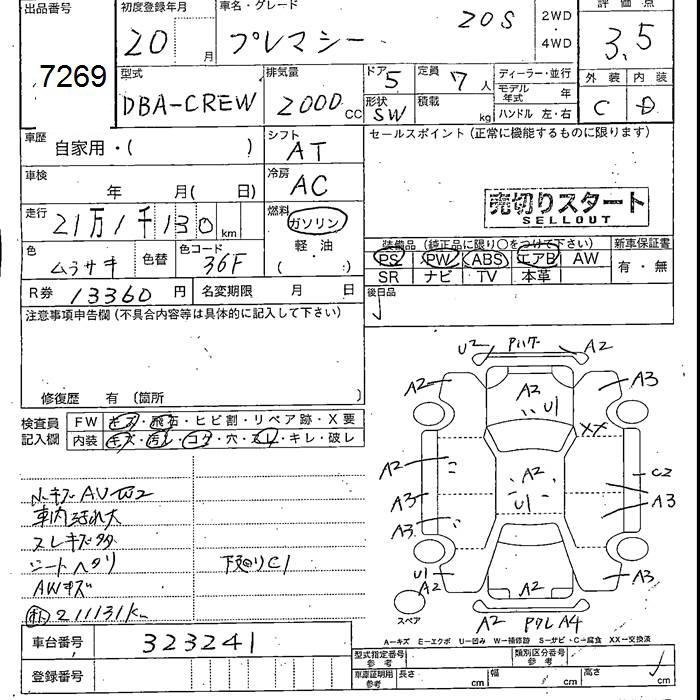 出品番号 7269
初度登録年月 20 月
車名・グレード プレマシー 20S
2WD・4WD
評価点 3.5
型式 DBA-CREW
排気量 2000 CC
ドア 5
定員 7 人
形状 SW
積載 kg
ディーラー・並行
モデル年式 年
ハンドル 左・右
外装 C
内装 D
車歴 自家用・( )
シフト AT
セールスポイント(正常に機能するものに限ります)
車検 年 月( 日)
冷房 AC
売切りスタート
SELLOUT
走行 21万1千130 km
燃料 ガソリン
軽油
( : )
色 ムラサキ 色替
色コード 36F
装備品(純正品に限り○をつけて下さい)
新車保証書
PS PW ABS エアB AW
有・無
SR ナビ TV 本革
R券 13360 円
名変期限 月 日
後日品
注意事項申告欄(不具合内容等は具体的に記入して下さい)
修復歴 有〔箇所 〕
検査員記入欄
FW キズ・飛石・ヒビ割・リペア跡・X要
内装 キズ・汚レ・コゲ・穴・スレ・キレ・破レ
U2 A2
A2 U1
A3 A3
XX
A2 A2 C2
U1
A3 A3
A3
U1 A2 A2 A3
A2 A4
スペア
車内汚れ大
スレキズ多
シートヘタリ
下廻りC1
AWキズ
211131km
A―キズ E―エクボ U―凹み W―補修跡 S―サビ C―腐食 XX―交換済
車台番号 323241
型式指定番号 参考
類別区分番号 参考
登録番号
車庫証明用 参考 長さ cm 幅 cm 高さ cm